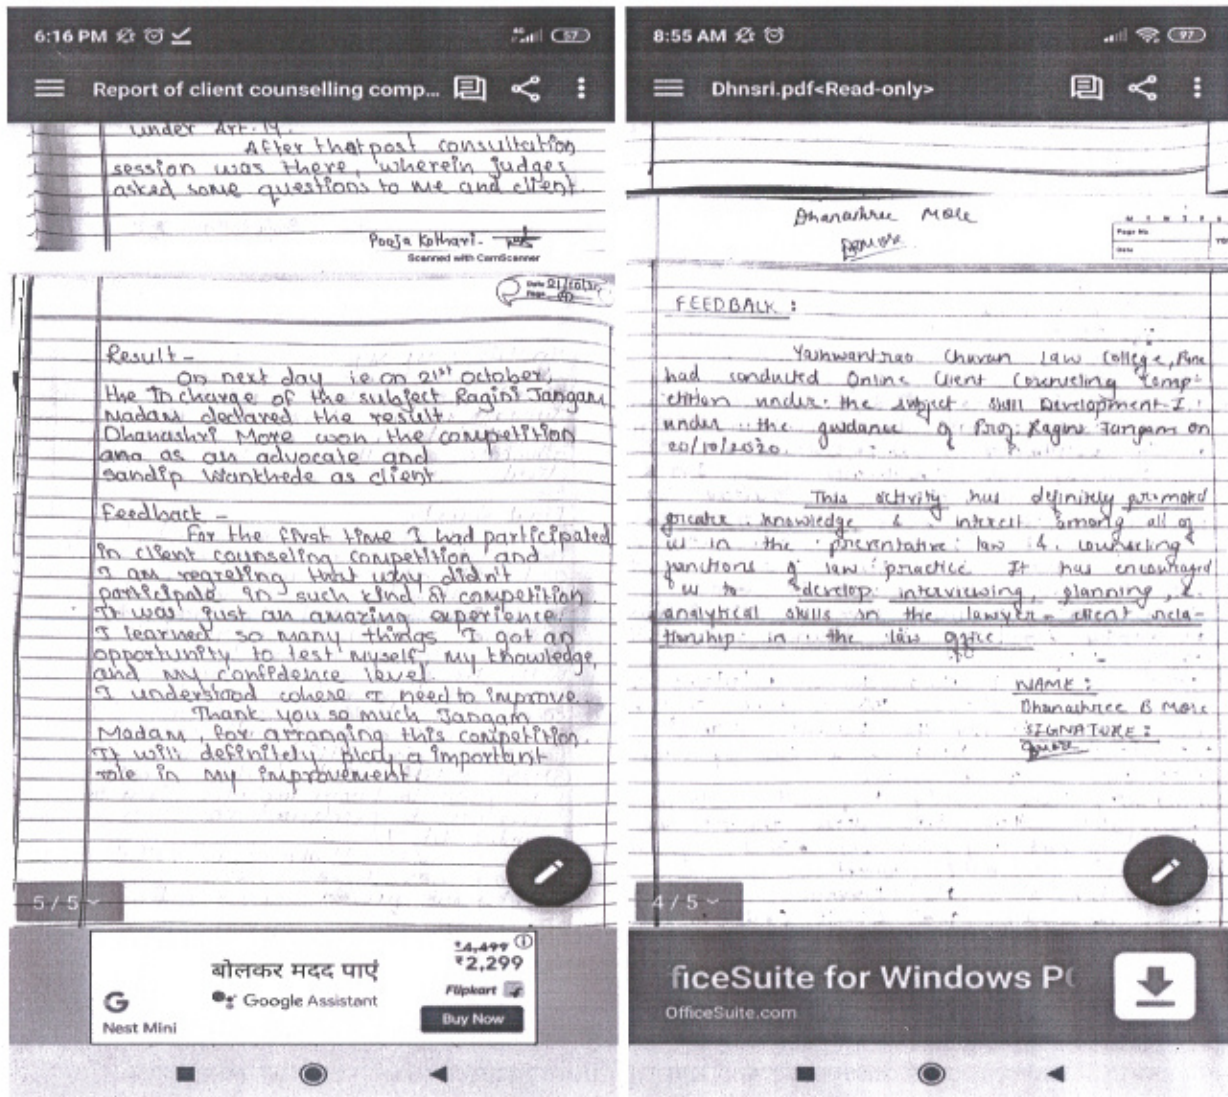 6:16 PM
57
Report of client counselling comp...
under Art. 19.
After that post consultation
session was there, wherein judges
asked some questions to me and client.
Pooja Kothari.
Scanned with CamScanner
Date 21/10/20
Page
Result -
On next day ie on 21st October,
the In charge of the subject Ragini Jangam
Madam declared the result.
Dhanashri More won the competition
ana as an advocate and
sandip Wankhede as client
Feedback -
For the first time I had participated
in client counseling competition and
I am regreting that why didn't
participate in such kind of competition
It was just an amazing experience.
I learned so many things I got an
opportunity to test myself, my knowledge,
and my confidence level.
I understood where I need to improve.
Thank you so much Jangam
Madam, for arranging this competition.
It will definitely play a important
role in my improvement.
5 / 5
बोलकर मदद पाएं
Google Assistant
G
Nest Mini
₹4,499
₹2,299
Flipkart
Buy Now
8:55 AM
97
Dhnsri.pdf<Read-only>
Dhanashree More
Page No
Date
FEEDBACK :
Yashwantrao Chavan Law College, Pune
had conducted Online Client Counseling Comp-
etition under the subject Skill Development-I
under the guidance of Prof. Ragini Jangam on
20/10/2020.
This activity has definitely promoted
greater knowledge & interest among all of
us in the preventative law & counseling
functions of law practice It has encouraged
us to develop interviewing, planning, &
analytical skills in the lawyer-client rela-
tionship in the law office
NAME :
Dhanashree B More
SIGNATURE :
4 / 5
ficeSuite for Windows PC
OfficeSuite.com